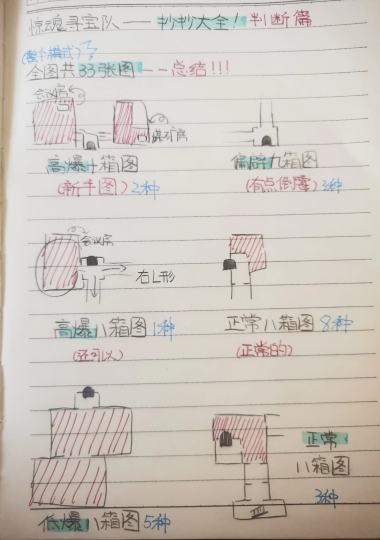 惊魂寻宝队——抄抄大全！判断篇
(整个模式)
全图共33张图——总结!!!
会议房
煤矿房
高爆十箱图
偏僻九箱图
(新手图)2种
(有点倒霉)3种
会议房
右L形
高爆八箱图1种
正常八箱图8种
(还可以)
(正常的)
正常
八箱图
3种
低爆八箱图5种